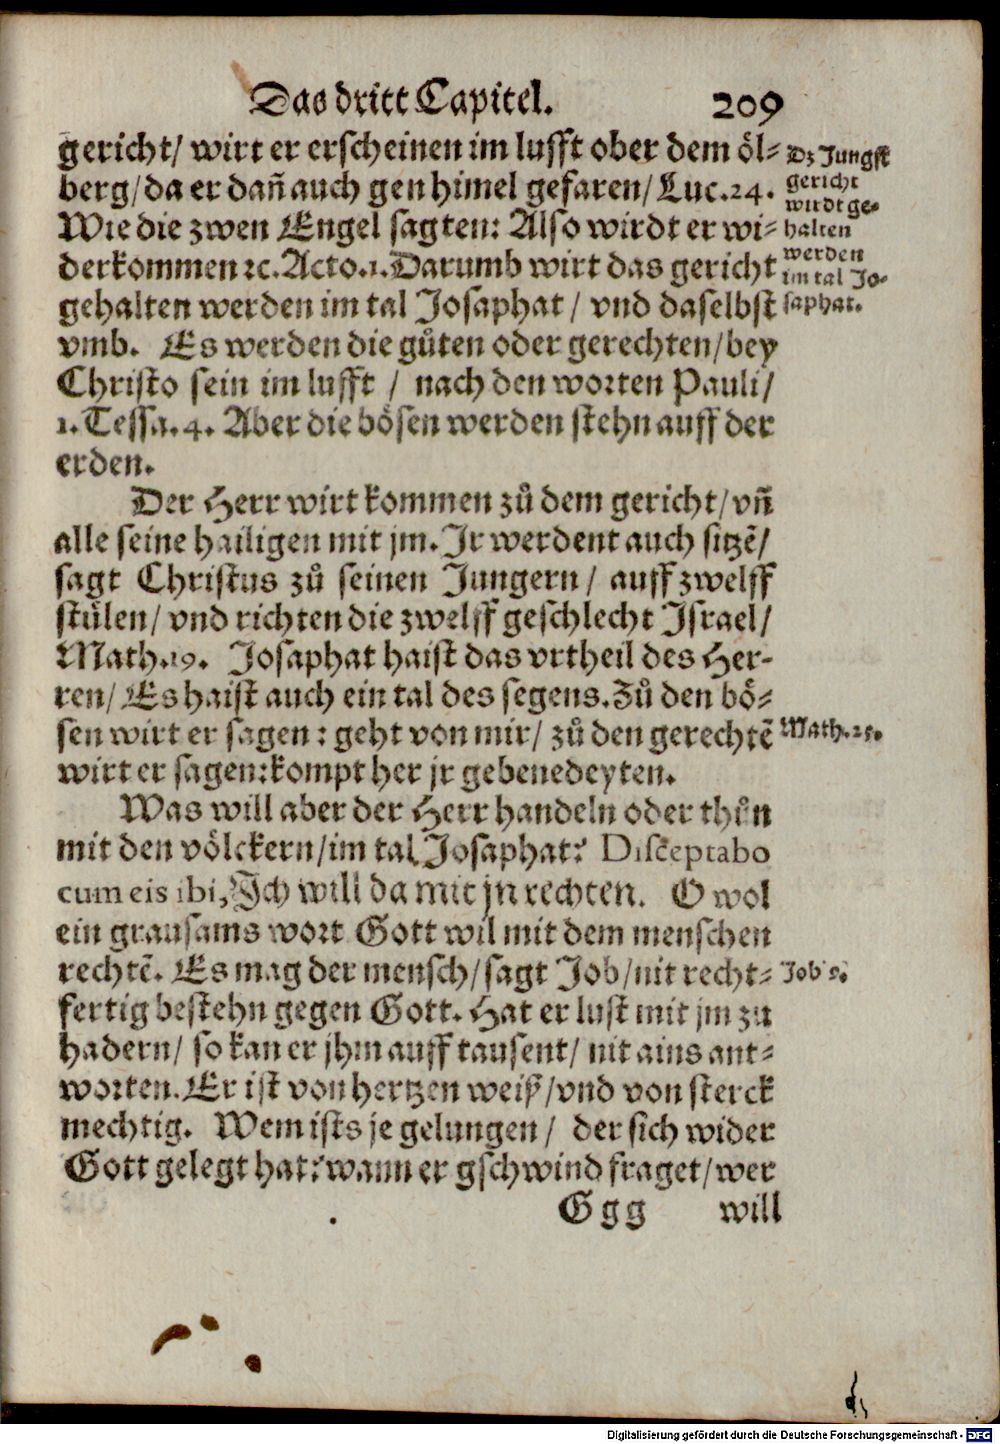 Das dritt Capitel. 209
gericht/ wirt er erscheinen im lufft ober dem öl-
berg/ da er dañ auch gen himel gefaren/ Luc. 24.
Wie die zwen Engel sagten: Also wirdt er wi-
derkommen ꝛc. Acto. 1. Darumb wirt das gericht
gehalten werden im tal Josaphat / vnd daselbst
vmb. Es werden die gůten oder gerechten/ bey
Christo sein im lufft / nach den worten Pauli/
1. Tessa. 4. Aber die bösen werden stehn auff der
erden.
Dz Jungst
gericht
wirdt ge-
halten
werden
im tal Jo-
saphat.
Der Herr wirt kommen zů dem gericht/ vñ
alle seine hailigen mit jm. Jr werdent auch sitzẽ/
sagt Christus zů seinen Jungern / auff zwelff
stůlen/ vnd richten die zwelff geschlecht Jsrael/
Math. 19. Josaphat haist das vrtheil des Her-
ren/ Es haist auch ein tal des segens. Zů den bö-
sen wirt er sagen: geht von mir/ zů den gerechtẽ
wirt er sagen: kompt her jr gebenedeyten.
Math. 25.
Was will aber der Herr handeln oder thůn
mit den völckern/ im tal Josaphat? Disceptabo
cum eis ibi, Jch will da mit jn rechten. O wol
ein grausams wort Gott wil mit dem menschen
rechtẽ. Es mag der mensch/ sagt Job/ nit recht-
fertig bestehn gegen Gott. Hat er lust mit jm zu
hadern/ so kan er jhm auff tausent/ nit ains ant-
worten. Er ist von hertzen weiß/ vnd von sterck
mechtig. Wem ists je gelungen / der sich wider
Gott gelegt hat? wann er gschwind fraget/ wer
Job 9.
Ggg will
Digitalisierung gefördert durch die Deutsche Forschungsgemeinschaft - DFG